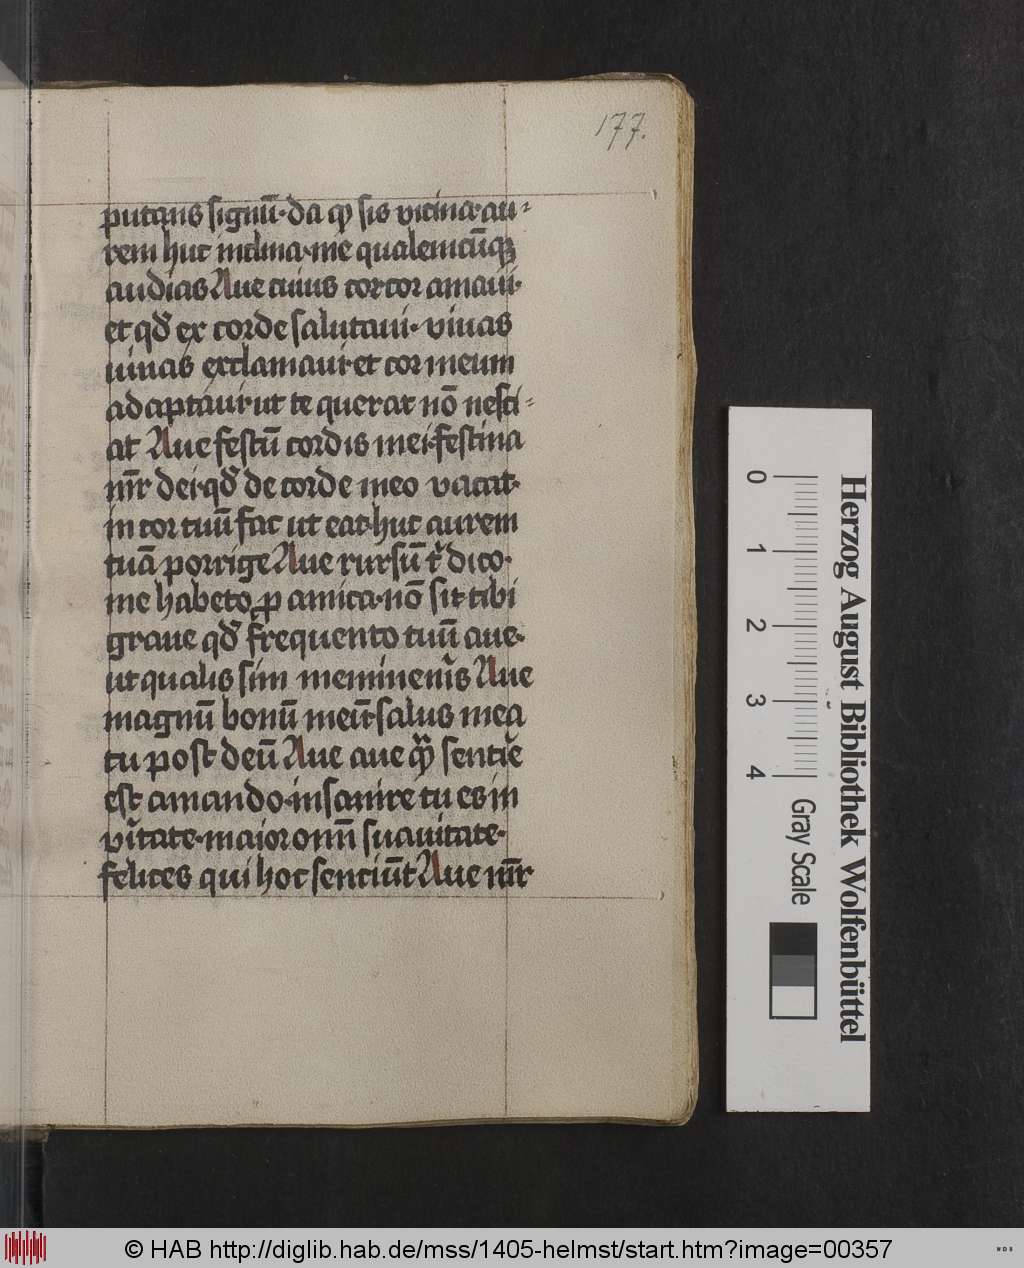 177.
putans signū· da q̄ sis vicina· au-
rem huc inclina· me qualemcūqꝫ
audias Aue cuius cor cor amaui·
et qđ ex corde salutaui· viuas
uiuas exclamaui· et cor meum
adaptaui· ut te querat nō nesci-
at Aue festū cordis mei· festina
mr̄ dei· qđ de corde meo vacat·
in cor tuū fac ut eat· huc aurem
tuā porrige Aue rursū t̄ dico·
me habeto ꝑ amica· nō sit tibi
graue qđ frequento tuū aue·
ut qualis sim memineris Aue
magnū bonū meū· salus mea
tu post deū Aue aue q̄ sentire
est amando· insanire tu es in
v̄itate· maior om̄i suauitate·
felices qui hoc senciūt Aue mr̄
Herzog August Bibliothek Wolfenbüttel
0 1 2 3 4
Gray Scale
© HAB http://diglib.hab.de/mss/1405-helmst/start.htm?image=00357